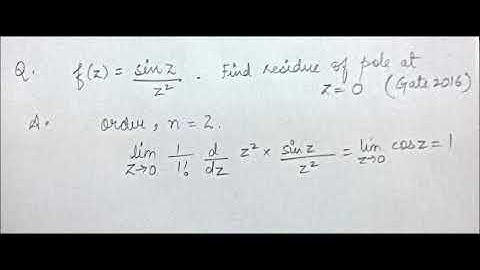 Q. f(z) = sin z / z². Find residue of pole at
z = 0 (Gate 2016)
A. order, n = 2.
lim z→0 1/1! d/dz z² × sin z / z² = lim z→0 cos z = 1